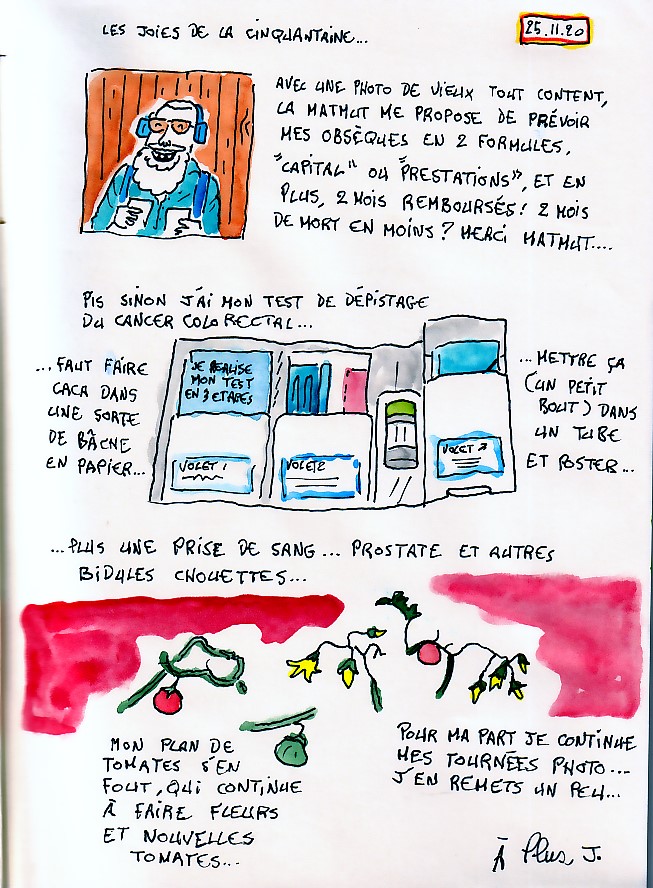 LES JOIES DE LA CINQUANTAINE...
25.11.20
AVEC UNE PHOTO DE VIEUX TOUT CONTENT,
LA MATMUT ME PROPOSE DE PRÉVOIR
MES OBSÈQUES EN 2 FORMULES,
"CAPITAL" OU "PRESTATIONS", ET EN
PLUS, 2 MOIS REMBOURSÉS! 2 MOIS
DE MORT EN MOINS? MERCI MATMUT....
PIS SINON J'AI MON TEST DE DÉPISTAGE
DU CANCER COLORECTAL...
...FAUT FAIRE
CACA DANS
UNE SORTE
DE BÂCHE
EN PAPIER...
JE RÉALISE
MON TEST
EN 3 ETAPES
VOLET 1
VOLET 2
VOLET 3
...METTRE ÇA
(UN PETIT
BOUT) DANS
UN TUBE
ET POSTER...
...PLUS UNE PRISE DE SANG... PROSTATE ET AUTRES
BIDULES CHOUETTES...
MON PLAN DE
TOMATES S'EN
FOUT, QUI CONTINUE
À FAIRE FLEURS
ET NOUVELLES
TOMATES...
POUR MA PART JE CONTINUE
MES TOURNÉES PHOTO...
J'EN REMETS UN PEU...
À Plus J.